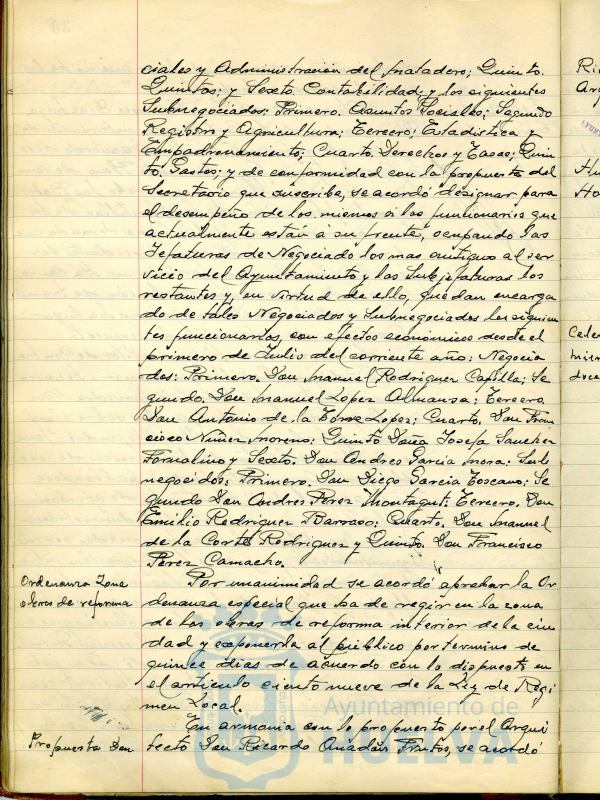 ciales y Administración del Matadero; Quinto.
Quintas; y Sexto Contabilidad, y los siguientes
Subnegociados: Primero. Asuntos Sociales; Segundo
Registro y Agricultura; Tercero; Estadistica y
Empadronamiento; Cuarto. Derechos y Tasas; Quin
to. Gastos; y de conformidad con la propuesta del
Secretario que suscribe, se acordó designar para
el desempeño de los mismos a los funcionarios que
actualmente están a su frente, ocupando las
Jefaturas de Negociado los mas antiguo al ser
vicio del Ayuntamiento y las Subjefaturas los
restantes y, en virtud de ello, quedan encarga
do de tales Negociados y Subnegociados los siguien
tes funcionarios, con efectos económicos desde el
primero de Julio del corriente año: Negocia
dos: Primero. Don Manuel Rodriguez Capilla; Se
gundo. Don Manuel Lopez Almanza; Tercero.
Don Antonio de la Torre Lopez; Cuarto. Don Fran
cisco Nuñez Moreno; Quinto Doña Josefa Sanchez
Fornalino y Sexto. Don Andres Garcia Mora: Sub
negociados: Primero. Don Diego Garcia Toscano; Se
gundo Don Andres Perez Montagut; Tercero. Don
Emilio Rodriguez Barroso; Cuarto. Don Manuel
de la Corte Rodriguez y Quinto. Don Francisco
Perez Camacho.
Ordenanza Zona
obras de reforma
Por unanimidad se acordó aprobar la Or
denanza especial que ha de regir en la zona
de las obras de reforma interior de la ciu
dad y exponerla al público por termino de
quince dias de acuerdo con lo dispuesto en
el articulo ciento nueve de la Ley de Regi
men Local.
Propuesta Don
En armonia con lo propuesto por el Arqui
tecto Don Ricardo Anadón Frutos, se acordó
Ayuntamiento de
HUELVA